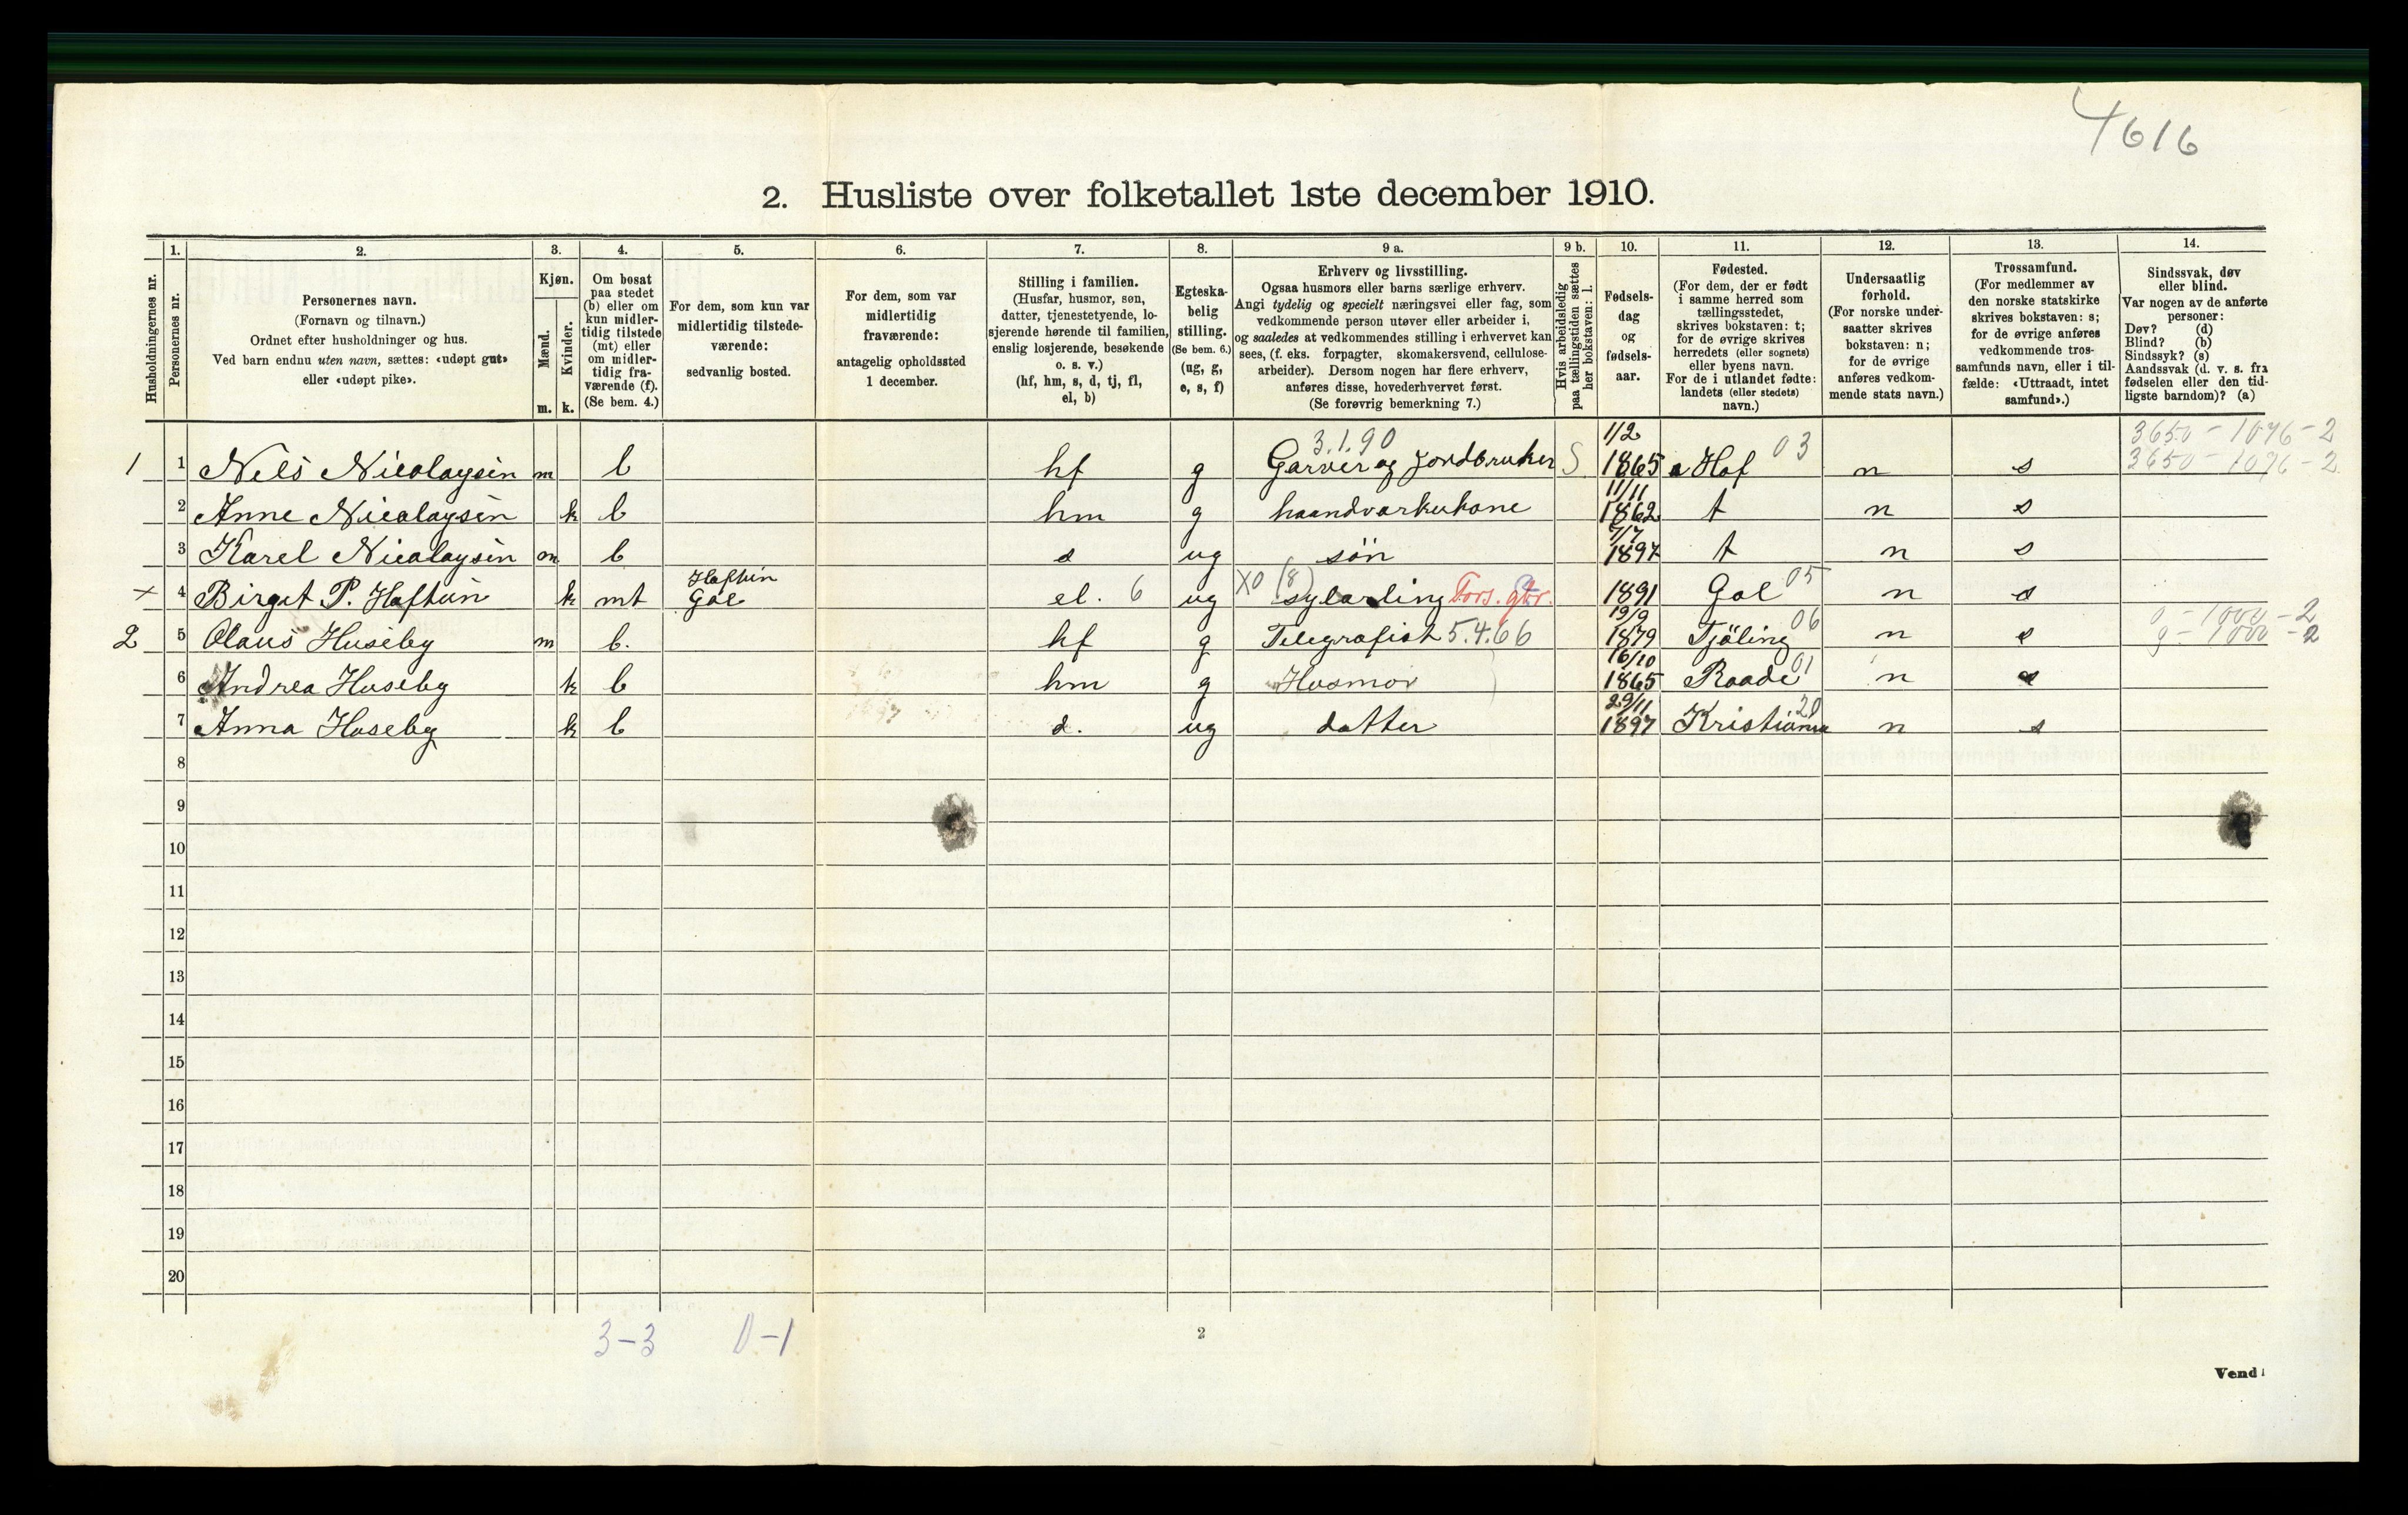 4616
2. Husliste over folketallet 1ste december 1910.
Husholdningernes nr.
1. Personernes nr.
2. Personernes navn.
(Fornavn og tilnavn.)
Ordnet efter husholdninger og hus.
Ved barn endnu uten navn, sættes: «udøpt gut»
eller «udøpt pike».
3. Kjøn.
Mænd. m.
Kvinder. k.
4. Om bosat
paa stedet
(b) eller om
kun midler-
tidig tilstede
(mt) eller
om midler-
tidig fra-
værende (f).
(Se bem. 4.)
5. For dem, som kun var
midlertidig tilstede-
værende:
sedvanlig bosted.
6. For dem, som var
midlertidig
fraværende:
antagelig opholdssted
1 december.
7. Stilling i familien.
(Husfar, husmor, søn,
datter, tjenestetyende, lo-
sjerende hørende til familien,
enslig losjerende, besøkende
o. s. v.)
(hf, hm, s, d, tj, fl,
el, b)
8. Egteska-
belig
stilling.
(Se bem. 6.)
(ug, g,
e, s, f)
9 a. Erhverv og livsstilling.
Ogsaa husmors eller barns særlige erhverv.
Angi tydelig og specielt næringsvei eller fag, som
vedkommende person utøver eller arbeider i,
og saaledes at vedkommendes stilling i erhvervet kan
sees, (f. eks. forpagter, skomakersvend, cellulose-
arbeider). Dersom nogen har flere erhverv,
anføres disse, hovederhvervet først.
(Se forøvrig bemerkning 7.)
9 b. Hvis arbeidsledig
paa tællingstiden sættes
her bokstaven: l.
10. Fødsels-
dag
og
fødsels-
aar.
11. Fødested.
(For dem, der er født
i samme herred som
tællingsstedet,
skrives bokstaven: t;
for de øvrige skrives
herredets (eller sognets)
eller byens navn.
For de i utlandet fødte:
landets (eller stedets)
navn.)
12. Undersaatlig
forhold.
(For norske under-
saatter skrives
bokstaven: n;
for de øvrige
anføres vedkom-
mende stats navn.)
13. Trossamfund.
(For medlemmer av
den norske statskirke
skrives bokstaven: s;
for de øvrige anføres
vedkommende tros-
samfunds navn, eller i til-
fælde: «Uttraadt, intet
samfund».)
14. Sindssvak, døv
eller blind.
Var nogen av de anførte
personer:
Døv? (d)
Blind? (b)
Sindssyk? (s)
Aandssvak (d. v. s. fra
fødselen eller den tid-
ligste barndom)? (a)
3.1.90 1/2 03 3650 - 1076 - 2
1 1 Nils Nicolaysen m b hf g Garver og Jordbruker S 1865 Hof n s 3650 - 1076 - 2
11/11
2 Anne Nicolaysen k b hm g haandverkerkone 1862 t n s
7/7
3 Karel Nicolaysen m b s ug søn 1897 t n s
Haftun
+ 4 Birgit P. Haftun k mt Gol el. 6 ug X0 (8) sylærling Fors. 1891 Gol 05 n s
19/9 06 0 - 1000 - 2
2 5 Olaus Huseby m b. hf g Telegrafist 5.4.66 1879 Tjöling n s 0 - 1000 - 2
16/10 01
6 Andrea Huseby k b hm g Husmor 1865 Raade n s
29/11 20
7 Anna Huseby k b d. ug datter 1897 Kristiania n s
8
9
10
11
12
13
14
15
16
17
18
19
20
3-3 0-1
2
Vend!